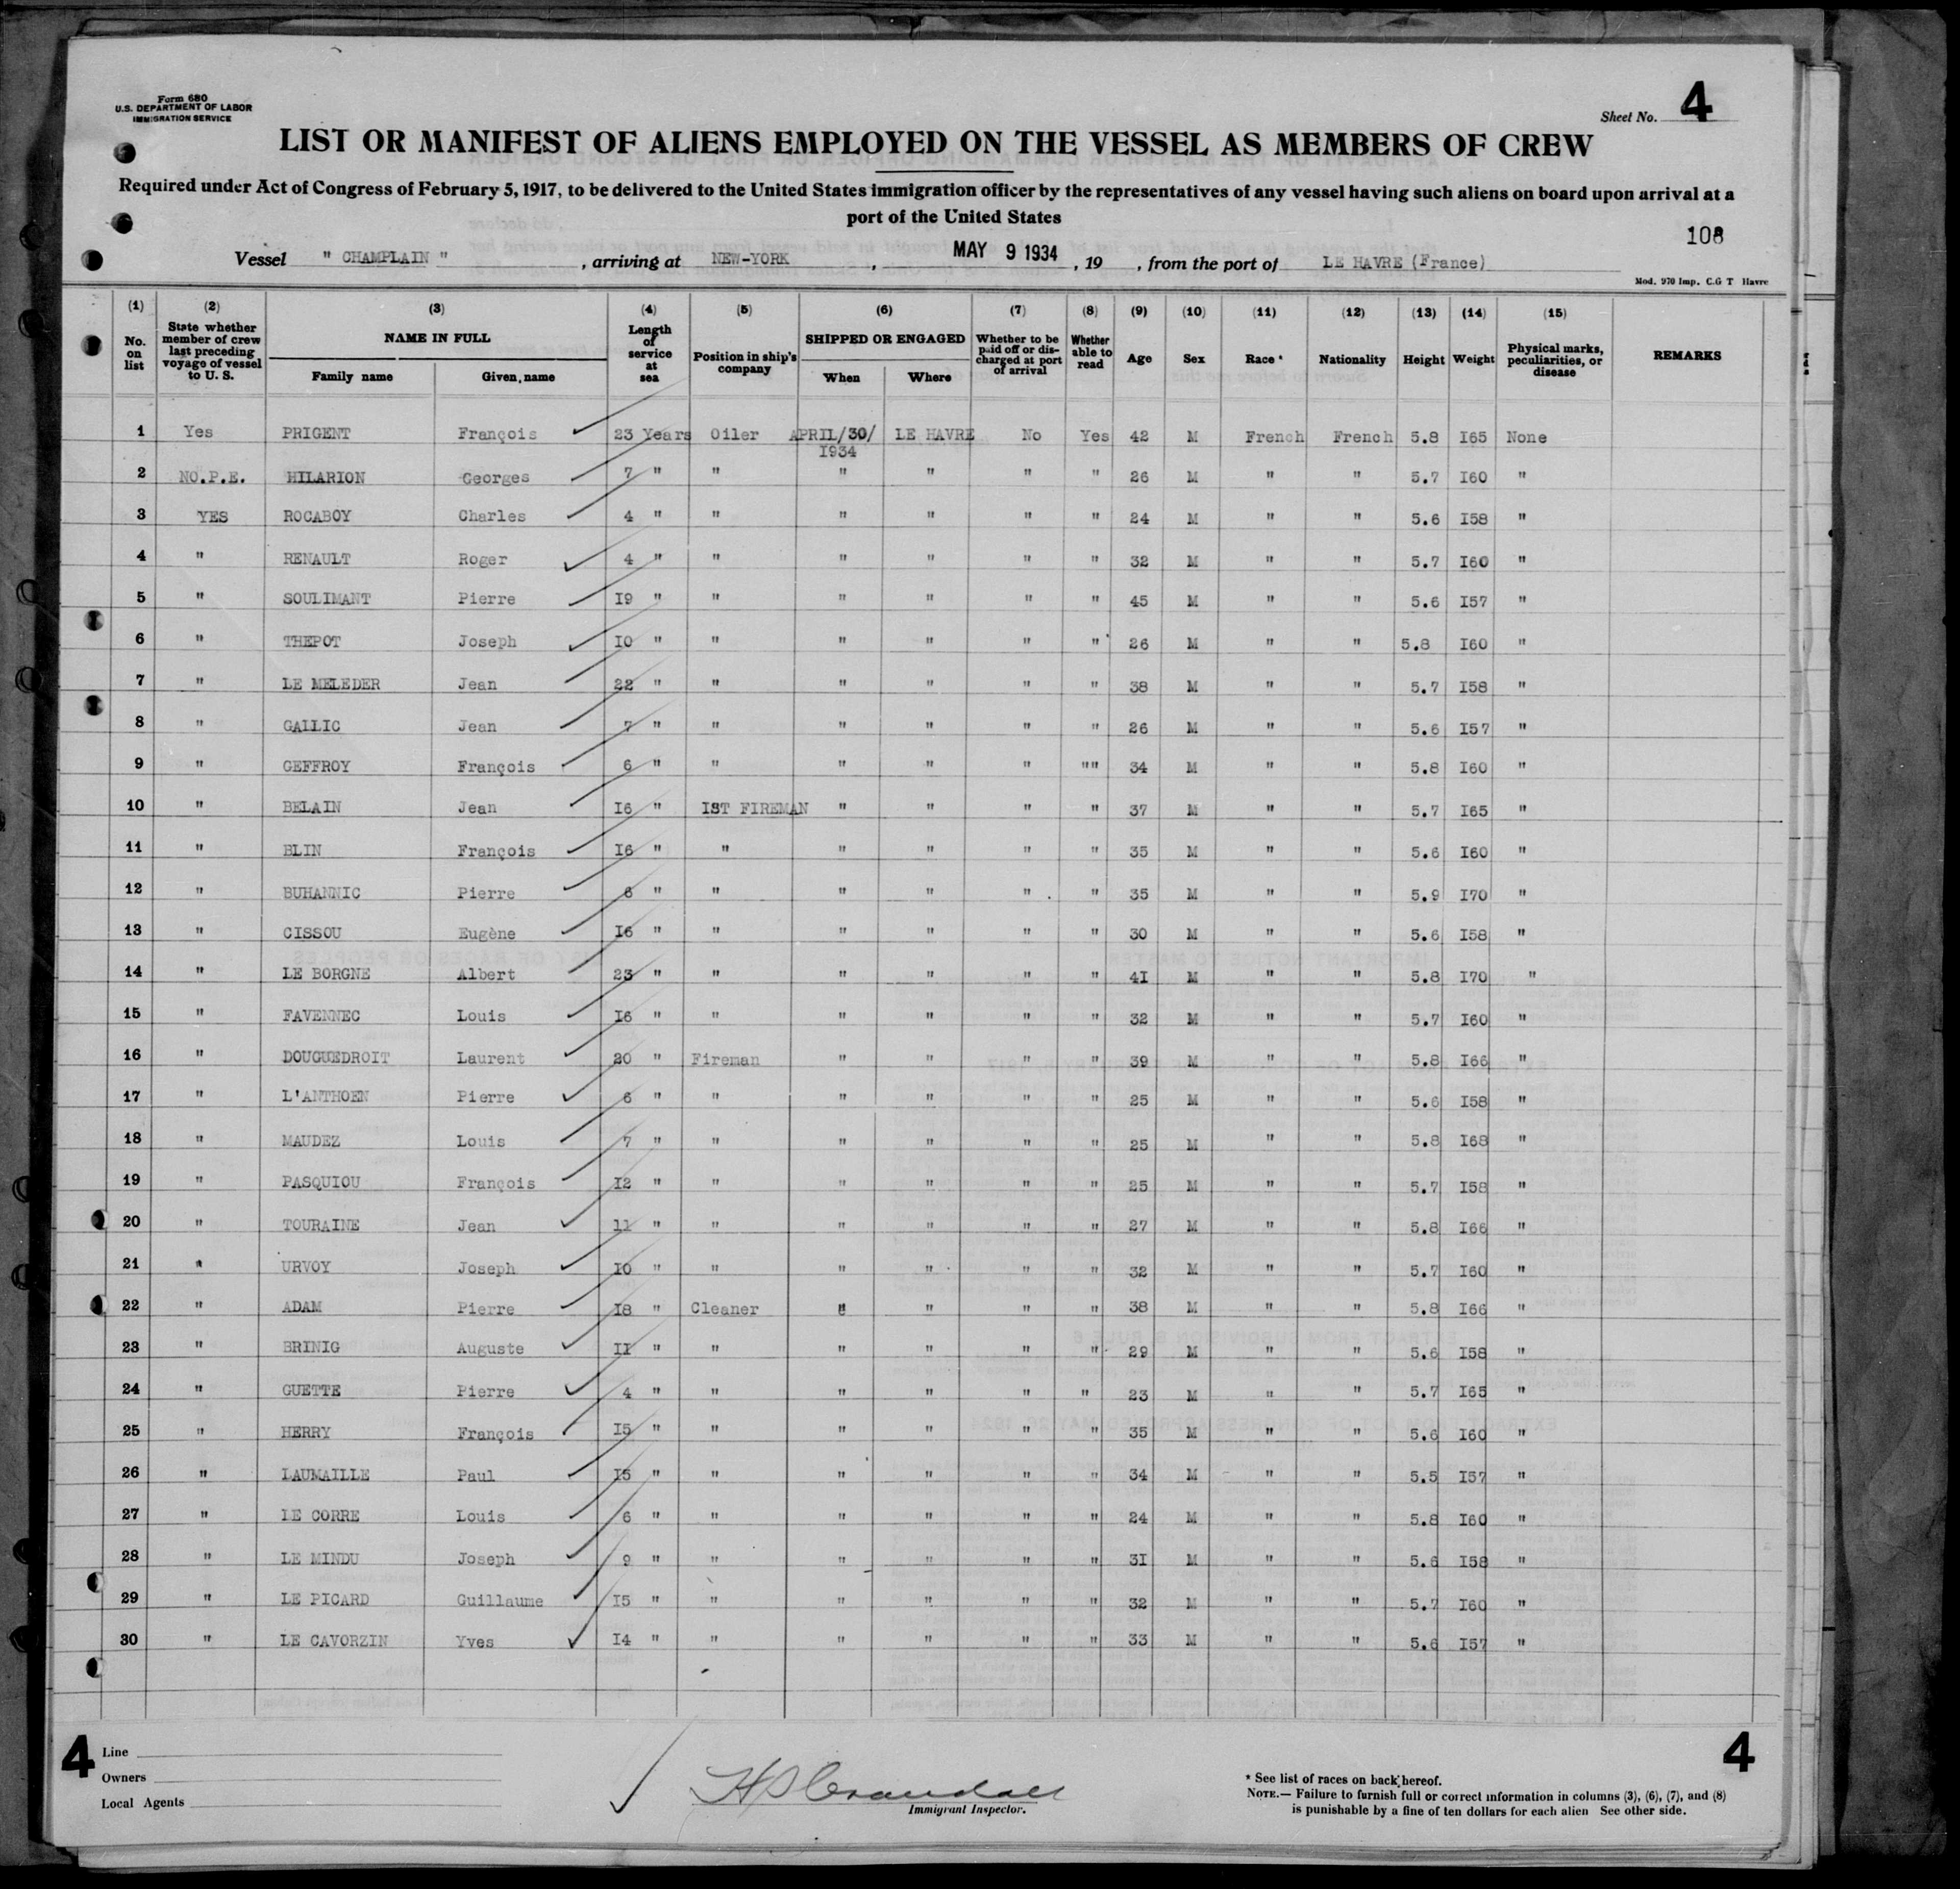 Form 680
U.S. DEPARTMENT OF LABOR
IMMIGRATION SERVICE
Sheet No. 4
LIST OR MANIFEST OF ALIENS EMPLOYED ON THE VESSEL AS MEMBERS OF CREW
Required under Act of Congress of February 5, 1917, to be delivered to the United States immigration officer by the representatives of any vessel having such aliens on board upon arrival at a
port of the United States
108
Vessel " CHAMPLAIN " , arriving at NEW-YORK , MAY 9 1934 , 19 , from the port of LE HAVRE (France)
Mod. 970 Imp. C.G T Havre
(1) (2) (3) (4) (5) (6) (7) (8) (9) (10) (11) (12) (13) (14) (15)
No. on list State whether member of crew last preceding voyage of vessel to U. S. NAME IN FULL Family name Given name Length of service at sea Position in ship's company SHIPPED OR ENGAGED When Where Whether to be paid off or discharged at port of arrival Whether able to read Age Sex Race * Nationality Height Weight Physical marks, peculiarities, or disease REMARKS
1 Yes PRIGENT François 23 Years Oiler APRIL/30/ LE HAVRE No Yes 42 M French French 5.8 I65 None
I934
2 NO.P.E. HILARION Georges 7 " " " " " " 26 M " " 5.7 I60 "
3 YES ROCABOY Charles 4 " " " " " " 24 M " " 5.6 I58 "
4 " RENAULT Roger 4 " " " " " " 32 M " " 5.7 I60 "
5 " SOULIMANT Pierre I9 " " " " " " 45 M " " 5.6 I57 "
6 " THEPOT Joseph I0 " " " " " " 26 M " " 5.8 I60 "
7 " LE MELEDER Jean 22 " " " " " " 38 M " " 5.7 I58 "
8 " GALLIC Jean 7 " " " " " " 26 M " " 5.6 I57 "
9 " GEFFROY François 6 " " " " " "" 34 M " " 5.8 I60 "
10 " BELAIN Jean I6 " IST FIREMAN " " " " 37 M " " 5.7 I65 "
11 " BLIN François I6 " " " " " " 35 M " " 5.6 I60 "
12 " BUHANNIC Pierre 6 " " " " " " 35 M " " 5.9 I70 "
13 " CISSOU Eugène I6 " " " " " " 30 M " " 5.6 I58 "
14 " LE BORGNE Albert 23 " " " " " " 4I M " " 5.8 I70 "
15 " FAVENNEC Louis I6 " " " " " " 32 M " " 5.7 I60 "
16 " DOUGUEDROIT Laurent 20 " Fireman " " " " 39 M " " 5.8 I66 "
17 " L'ANTHOEN Pierre 6 " " " " " " 25 M " " 5.6 I58 "
18 " MAUDEZ Louis 7 " " " " " " 25 M " " 5.8 I68 "
19 " PASQUIOU François I2 " " " " " " 25 M " " 5.7 I58 "
20 " TOURAINE Jean 11 " " " " " " 27 M " " 5.8 I66 "
21 " URVOY Joseph I0 " " " " " " 32 M " " 5.7 I60 "
22 " ADAM Pierre I8 " Cleaner " " " " 38 M " " 5.8 I66 "
23 " BRINIG Auguste II " " " " " " 29 M " " 5.6 I58 "
24 " GUETTE Pierre 4 " " " " " " 23 M " " 5.7 I65 "
25 " HERRY François I5 " " " " " " 35 M " " 5.6 I60 "
26 " LAUMAILLE Paul I5 " " " " " " 34 M " " 5.5 I57 "
27 " LE CORRE Louis 6 " " " " " " 24 M " " 5.8 I60 "
28 " LE MINDU Joseph 9 " " " " " " 3I M " " 5.6 I58 "
29 " LE PICARD Guillaume I5 " " " " " " 32 M " " 5.7 I60 "
30 " LE CAVORZIN Yves I4 " " " " " " 33 M " " 5.6 I57 "
4 4
Line
Owners
Local Agents
H Crandall
Immigrant Inspector.
* See list of races on back hereof.
NOTE.— Failure to furnish full or correct information in columns (3), (6), (7), and (8)
is punishable by a fine of ten dollars for each alien See other side.